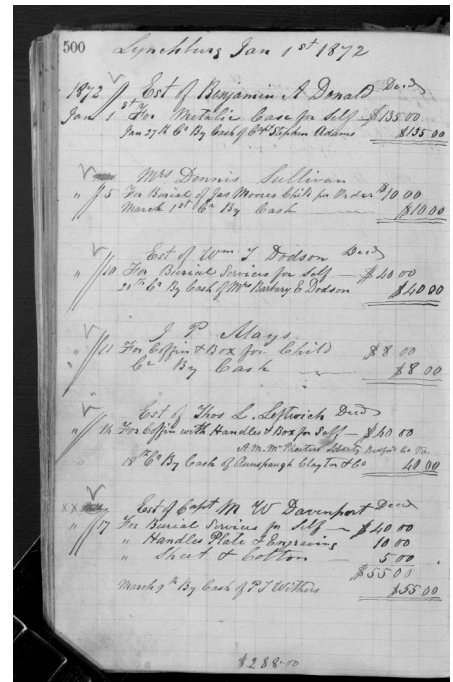 500
Lynchburg Jan 1st 1872
1872 Est of Benjamin A Donald Decd
Jan 1st For Metalic Case for Self — $135.00
Jan 27th Cr By Cash of Capt Stephen Adams $135 00
Mrs Dennis Sullivan
" 5 For Burial of Jas Moores Child per Order $10 00
March 1st Cr By Cash — $10 00
Est of Wm T Dodson Decd
" 10 For Burial Services for Self — $40 00
20th Cr By Cash of Mrs Barbary E Dodson $40 00
J P Mays
" 11 For Coffin & Box for Child $8 00
Cr By Cash — $8 00
Est of Thos L. Leftwich Decd
" 14 For Coffin with Handles & Box for Self — $40 00
A. M. Liberty Bedford Co Va
18th Cr By Cash of Clayton & Co 40 00
Est of Capt M W Davenport Decd
" 17 For Burial Services for Self — $40 00
" Handles Plate & Engraving 10 00
" Sheet & Cotton — 5 00
$55 00
March 9th By Cash of P T Withers $55 00
$288.00